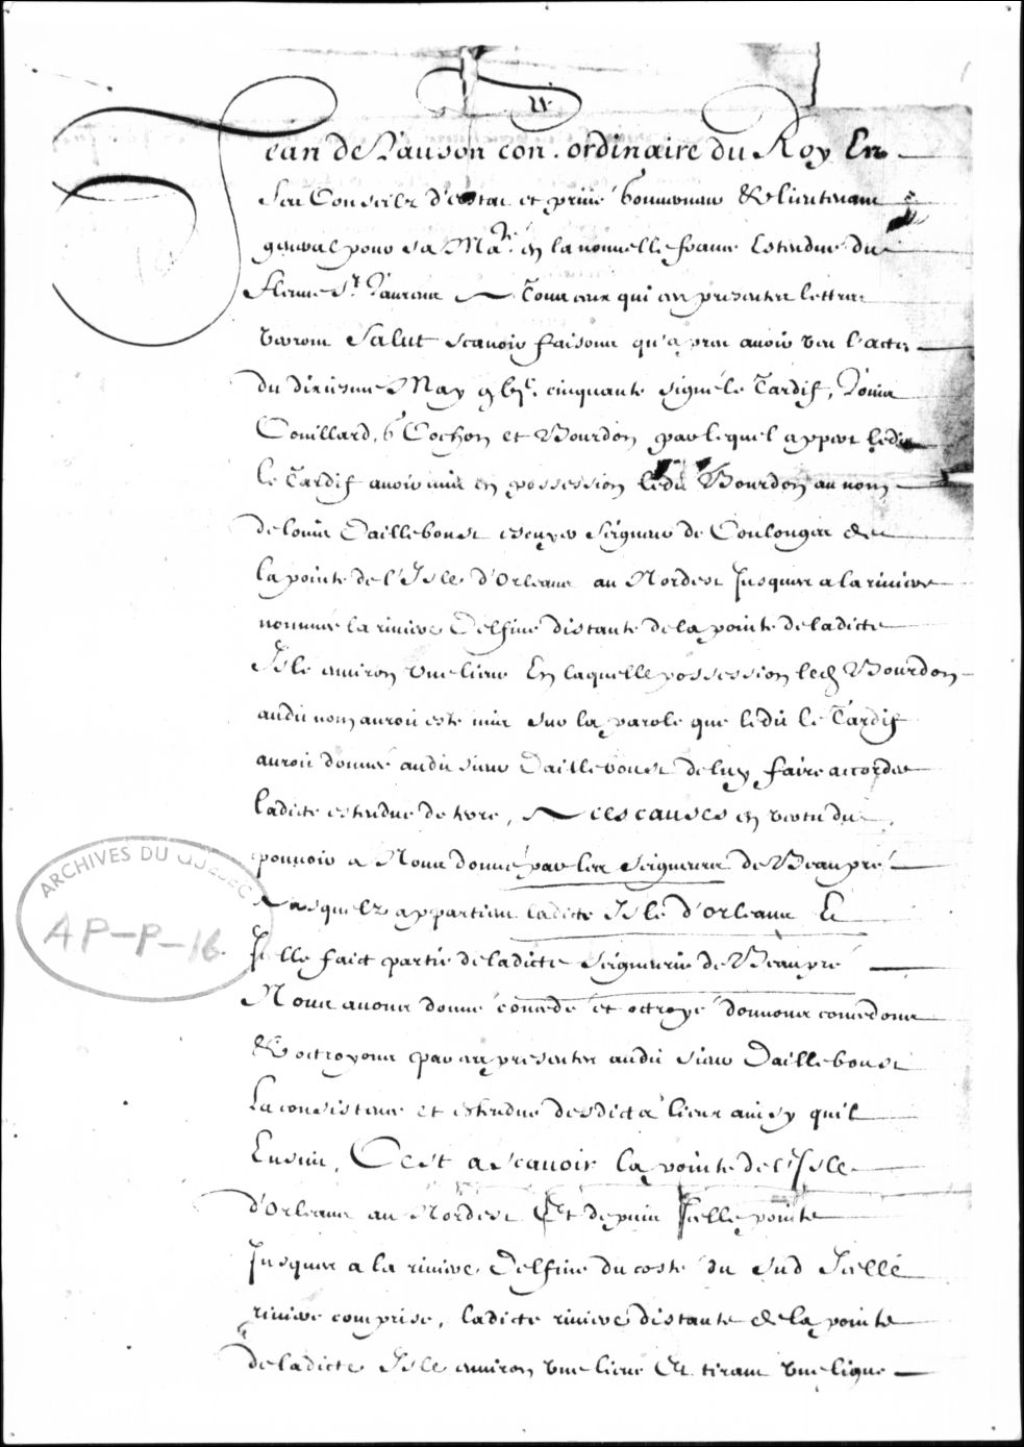 Jean de Lauson con.er ordinaire du Roy En
Ses Conseilz d'estat et privé Gouverneur & lieutenant
general pour sa Ma.té en la nouvelle france Estendue du
fleuve St. Laurens A Tous ceux qui ces presentes lettres
verront Salut scavoir faisons qu'apres avoir veu l'acte
du dixiesme May cinquante signé le Tardif, Louis
Couillard, G Cochon et Bourdon par lequel appert ledit
le Tardif avoir mis en possession ledit Bourdon au nom
de louis Dailleboust escuyer seigneur de Coulonges de
la pointe de l'Isle d'Orleans au Nordest Jusques a la riviere
nommée la riviere Delfine distante de la pointe de ladicte
Isle environ une lieue En laquelle possession led Bourdon
audit nom auroit esté mis sur la parole que ledit le Tardif
auroit donnée audit sieur Dailleboust de luy faire accorder
ladicte estendue de terre, A ces causes en vertu du
pouvoir a Nous donné par les seigneurs de Beaupré
Ausquelz appartient ladicte Isle d'Orleans Et
Icelle faict partie de ladicte seigneurie de Beaupré
Nous avons donné concedé et octroyé donnons concedons
& octroyons par ces presentes audit sieur Dailleboust
La consistance et estendue desdicts lieux ainsy quil
Ensuit, C'est a scavoir la pointe de l'Isle
d'Orleans au Nordest Et depuis Icelle pointe
Jusques a la riviere Delfine du costé du sud Icelle
riviere comprise, ladicte riviere distante de la pointe
de ladicte Isle environ une lieue Et tirant une ligne
ARCHIVES DU QUEBEC
AP-P-16